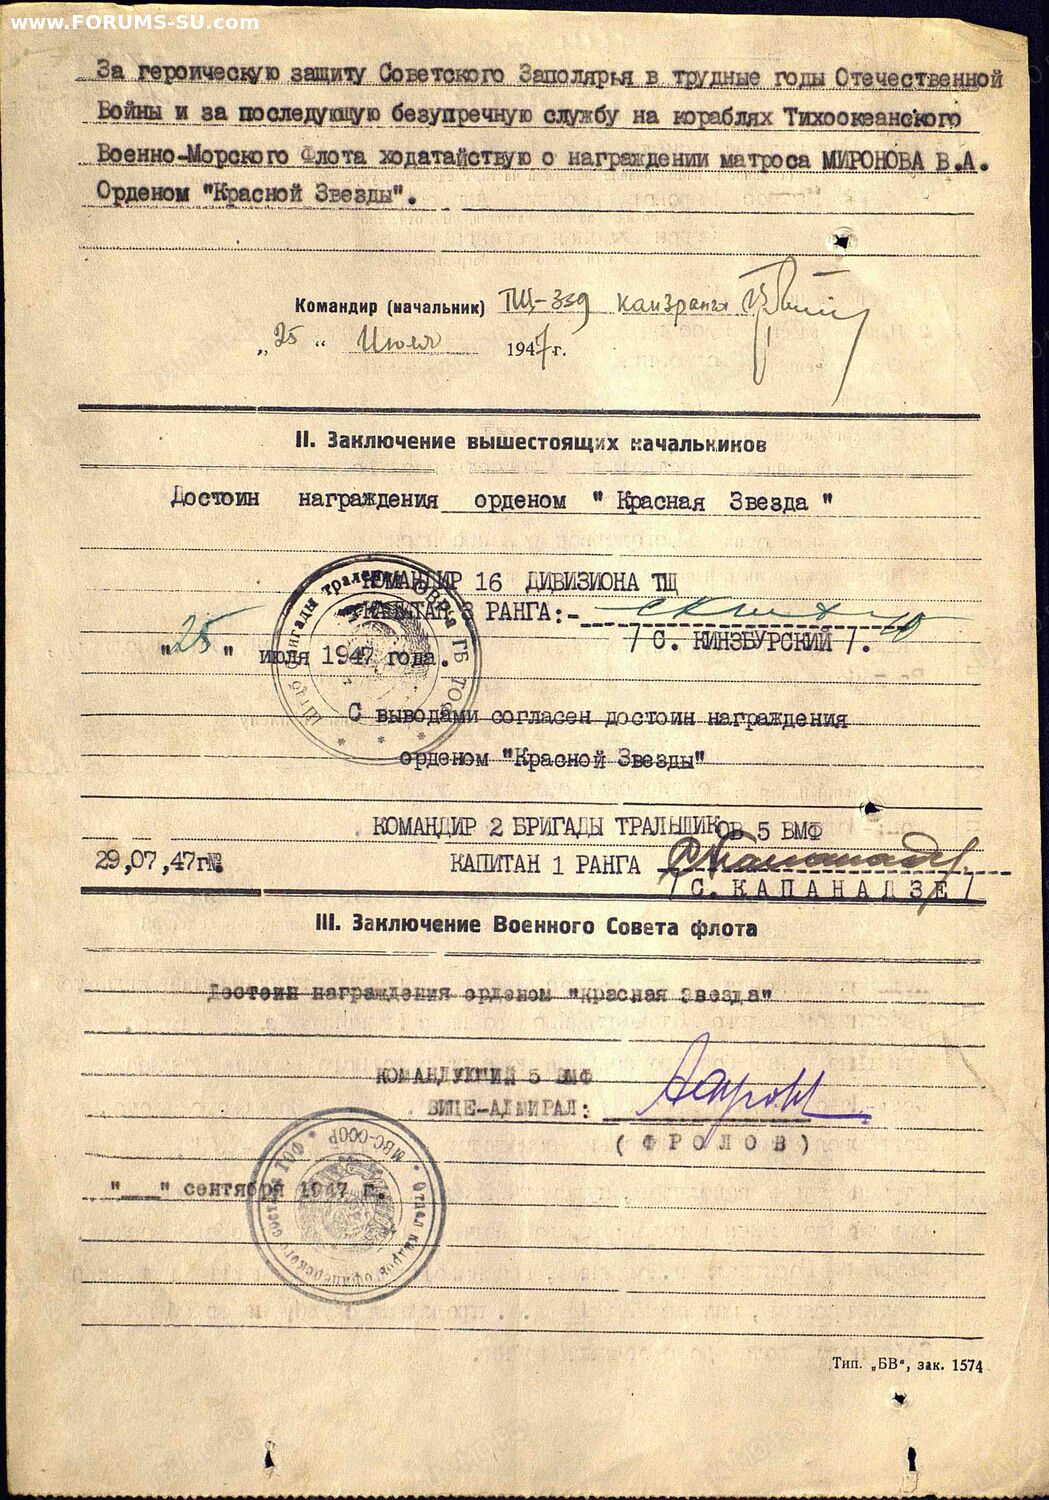 www.FORUMS-SU.com
За героическую защиту Советского Заполярья в трудные годы Отечественной
Войны и за последующую безупречную службу на кораблях Тихоокеанского
Военно-Морского Флота ходатайствую о награждении матроса МИРОНОВА В.А.
Орденом "Красной Звезды".
Командир (начальник) ТЩ-339
„25" Июля 1947г.
II. Заключение вышестоящих начальников
Достоин награждения орденом "Красная Звезда"
КОМАНДИР 16 ДИВИЗИОНА ТЩ
КАПИТАН 3 РАНГА:-
/ С. КИНЗБУРСКИЙ /.
"25" июля 1947 года.
С выводами согласен достоин награждения
орденом "Красной Звезды"
КОМАНДИР 2 БРИГАДЫ ТРАЛЬЩИКОВ 5 ВМФ
29,07,47г.
КАПИТАН 1 РАНГА
/ С. КАПАНАДЗЕ /
III. Заключение Военного Совета флота
Достоин награждения орденом "Красная Звезда"
КОМАНДУЮЩИЙ 5 ВМФ
ВИЦЕ-АДМИРАЛ:
( ФРОЛОВ )
"___" сентября 1947 г.
МВС-СССР * Отдел кадров офицерского состава ТОФ *
Тип. „БВ", зак. 1574